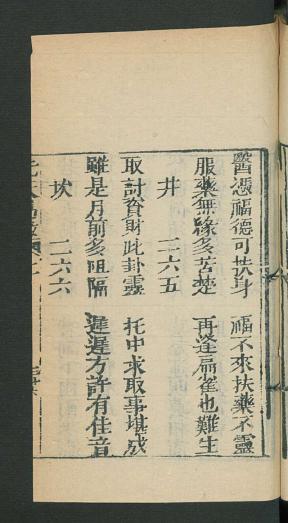 醫憑福德可扶身　福不來扶藥不靈
服藥無緣多苦楚　再逢扁雀也難生
井　二六五
取討貲財此卦靈　托中求取事堪成
雖是月前多阻隔　遲遲方許有佳音
坎　二六六